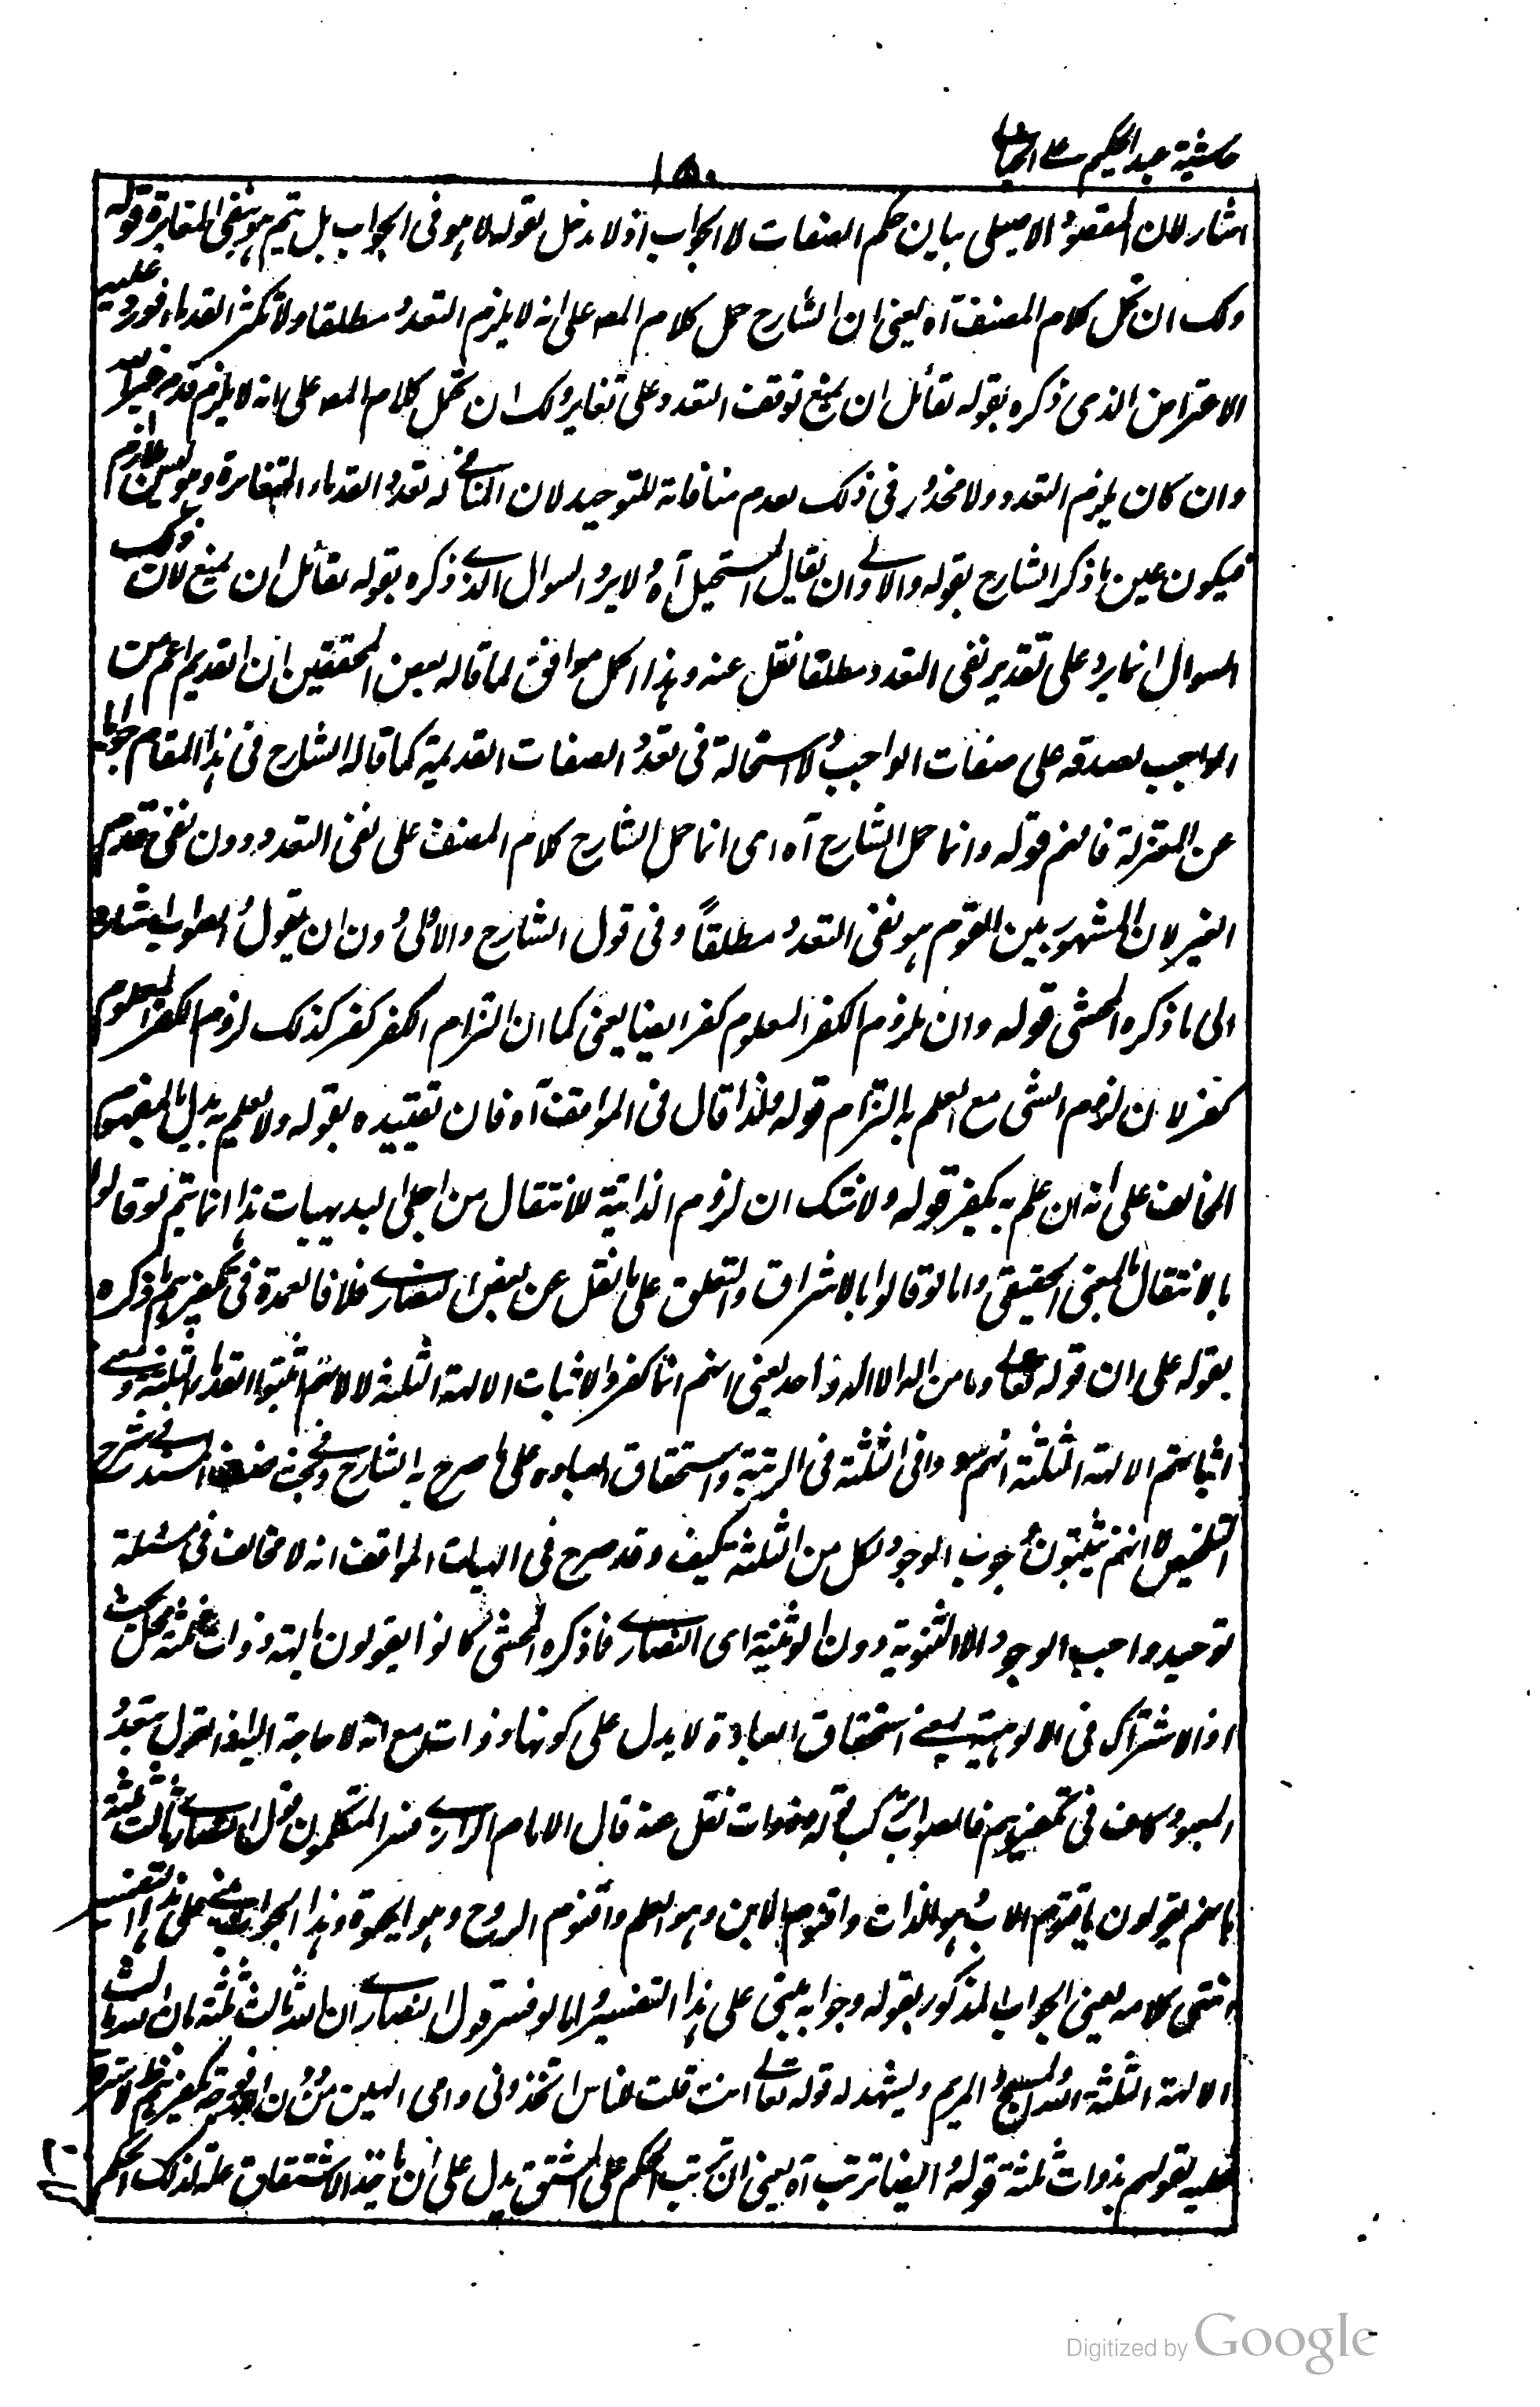 حاشية عبد الحكيم على الخيالى
١٥٠
اشار لان المقصود الاصلى بيان حكم الصفات لا الجواب اذ لا دخل لقوله لا هو فى الجواب بل يتم هو بنفى المغايرة قوله
ولك ان تحمل كلام المصنف آه يعنى ان الشارح حمل كلام المصه على انه لا يلزم التعدد مطلقا ولا تكثر القدماء فورد عليه
الاعتراض الذى ذكره بقوله لقائل ان يمنع توقف التعدد على تغاير ولك ان تحمل كلام المصه على انه لا يلزم قدم غير الله
وان كان يلزم التعدد ولا محذور فى ذلك لعدم منافاته للتوحيد لان المنافى له تعدد القدماء المتغايرة وهو ليس بلازم
فيكون عين ما ذكر الشارح بقوله والاولى ان يقال المستحيل آه ولا يرد السوال الذى ذكره بقوله لقائل ان يمنع لان ذلك
السوال انما يرد على تقدير نفى التعدد مطلقا نقل عنه وهذا الحمل موافق لما قاله بعض المحققين ان القديم اعم من
الواجب لصدقه على صفات الواجب ولا استحالة فى تعدد الصفات القديمة كما قاله الشارح فى هذا المقام جوابا
عن المعتزلة فافهم قوله وانما حمل الشارح آه اى انما حمل الشارح كلام المصنف على نفى التعدد دون نفى قدم
الغير لان المشهور بين القوم هو نفى التعدد مطلقاً وفى قول الشارح والاولى دون ان يقول الصواب اشارة
الى ما ذكره المحشى قوله وان لزوم الكفر المعلوم كفر ايضا يعنى كما ان التزام الكفر كفر كذلك لزوم الكفر المعلوم
كفر لان لزوم الشى مع العلم به التزام قوله فلذا قال فى المواقف آه فان تقييده بقوله ولا يعلم به يدل بالمفهوم
المخالف على انه ان علم به يكفر قوله ولا شك ان لزوم الذاتية للانتقال من اجلى البديهيات هذا انما يتم لو قالوا
بالانتقال بالمعنى الحقيقى واما لو قالوا بالاشراق والتعلق على ما نقل عن بعض النصارى فلا فالعمدة فى تكفيرهم ما ذكره
بقوله على ان قوله تعالى وما من اله الا اله واحد يعنى انهم انما كفروا لاثبات الالهة الثلثة لا لانهم اثبتوا القدماء الثلثة ومعنى
اثباتهم الالهة الثلثة انهم سووا فى الثلثة فى الرتبة واستحقاق العبادة على ما صرح به الشارح فى بحث المسند فى شرح
التلخيص لا انهم يثبتون وجوب الوجود لكل من الثلثة كيف وقد صرح فى الهيات المواقف انه لا مخالف فى مسئلة
توحيد واجب الوجود الا الثنوية دون الوثنية اى النصارى فما ذكره المحشى كانوا يقولون بالهة ذوات ثلثة محل بحث
اذ الاشتراك فى الالوهية يعنى استحقاق العبادة لا يدل على كونها ذوات مع انه لا حاجة اليه اذ القول بتعدد
المعبود كاف فى تكفيرهم فالصواب ترك قوله ذوات نقل عنه قال الامام الرازى فسر المتكلمون قول النصارى ثالث ثلثة
بانهم يقولون باقنوم الاب وهو الذات واقنوم الابن وهو العلم واقنوم الروح وهو الحيوة وهذا الجواب مبنى على هذا التفسير
انتهى كلامه يعنى الجواب المذكور بقوله وجوابه مبنى على هذا التفسير واما لو فسر قول النصارى ان الله ثالث ثلثة بان الله ثالث
الالهة الثلثة الله والمسيح والمريم ويشهد له قوله تعالى ءانت قلت للناس اتخذونى وامى الهين من دون الله فوجه تكفيرهم ظاهر لا سترة
عليه لقولهم بذوات ثلثة قوله وايضا ترتب آه يعنى ان ترتب الحكم على المشتق يدل على ان ماخذ الاشتقاق علة لذلك الحكم